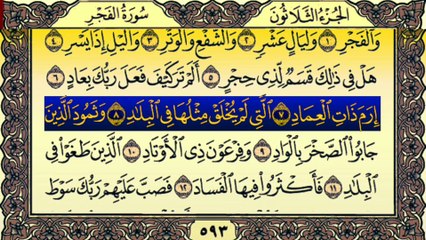 الجزء الثلاثون سورة الفجر
وَالْفَجْرِ ١ وَلَيَالٍ عَشْرٍ ٢ وَالشَّفْعِ وَالْوَتْرِ ٣ وَاللَّيْلِ إِذَا يَسْرِ ٤
هَلْ فِي ذَٰلِكَ قَسَمٌ لِّذِي حِجْرٍ ٥ أَلَمْ تَرَ كَيْفَ فَعَلَ رَبُّكَ بِعَادٍ ٦
إِرَمَ ذَاتِ الْعِمَادِ ٧ الَّتِي لَمْ يُخْلَقْ مِثْلُهَا فِي الْبِلَادِ ٨ وَثَمُودَ الَّذِينَ
جَابُوا الصَّخْرَ بِالْوَادِ ٩ وَفِرْعَوْنَ ذِي الْأَوْتَادِ ١٠ الَّذِينَ طَغَوْا فِي
الْبِلَادِ ١١ فَأَكْثَرُوا فِيهَا الْفَسَادَ ١٢ فَصَبَّ عَلَيْهِمْ رَبُّكَ سَوْطَ
٥٩٣